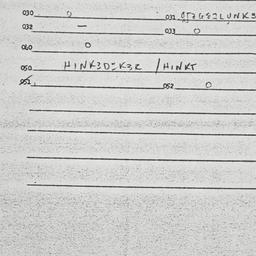 030 0 031
032 — 033 0
060 0
050 HINKEDEKER / HINKT
051 052 0